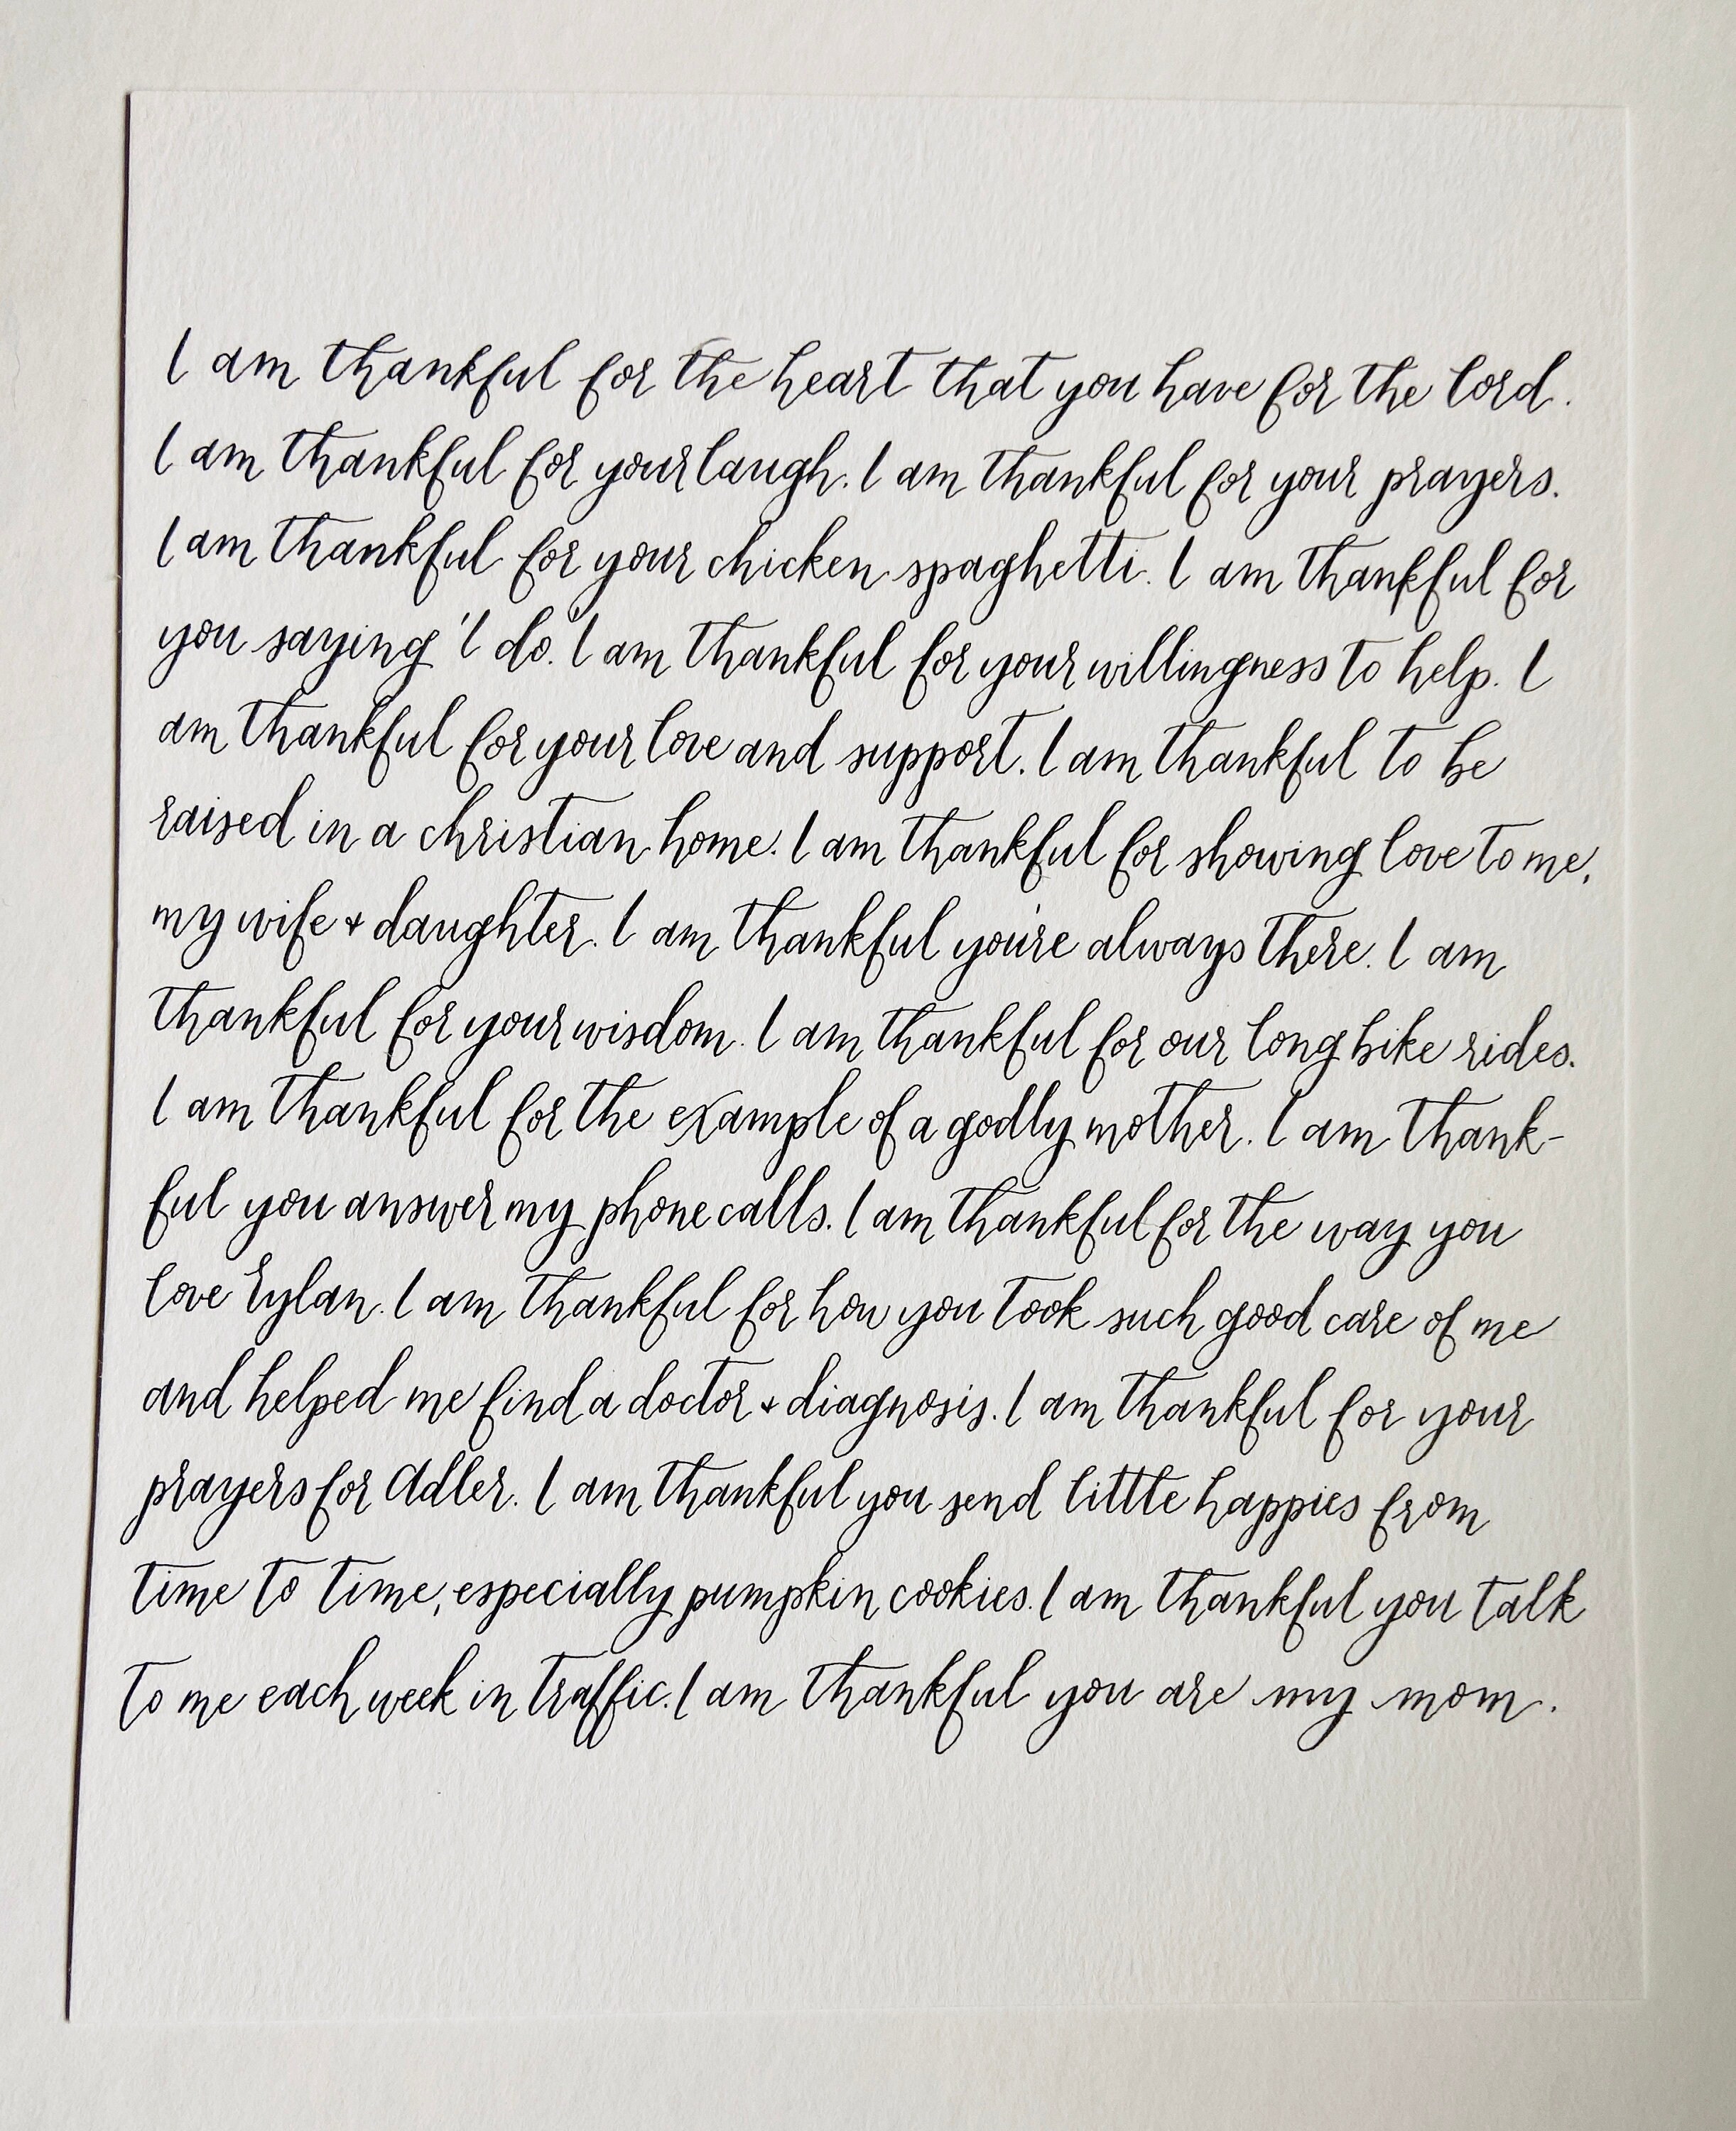 I am thankful for the heart that you have for the lord.
I am thankful for your laugh. I am thankful for your prayers.
I am thankful for your chicken spaghetti. I am thankful for
you saying 'I do.' I am thankful for your willingness to help. I
am thankful for your love and support. I am thankful to be
raised in a christian home. I am thankful for showing love to me,
my wife + daughter. I am thankful you're always there. I am
thankful for your wisdom. I am thankful for our long bike rides.
I am thankful for the example of a godly mother. I am thank-
ful you answer my phone calls. I am thankful for the way you
love Rylan. I am thankful for how you took such good care of me
and helped me find a doctor + diagnosis. I am thankful for your
prayers for Adler. I am thankful you send little happies from
time to time, especially pumpkin cookies. I am thankful you talk
to me each week in traffic. I am thankful you are my mom.